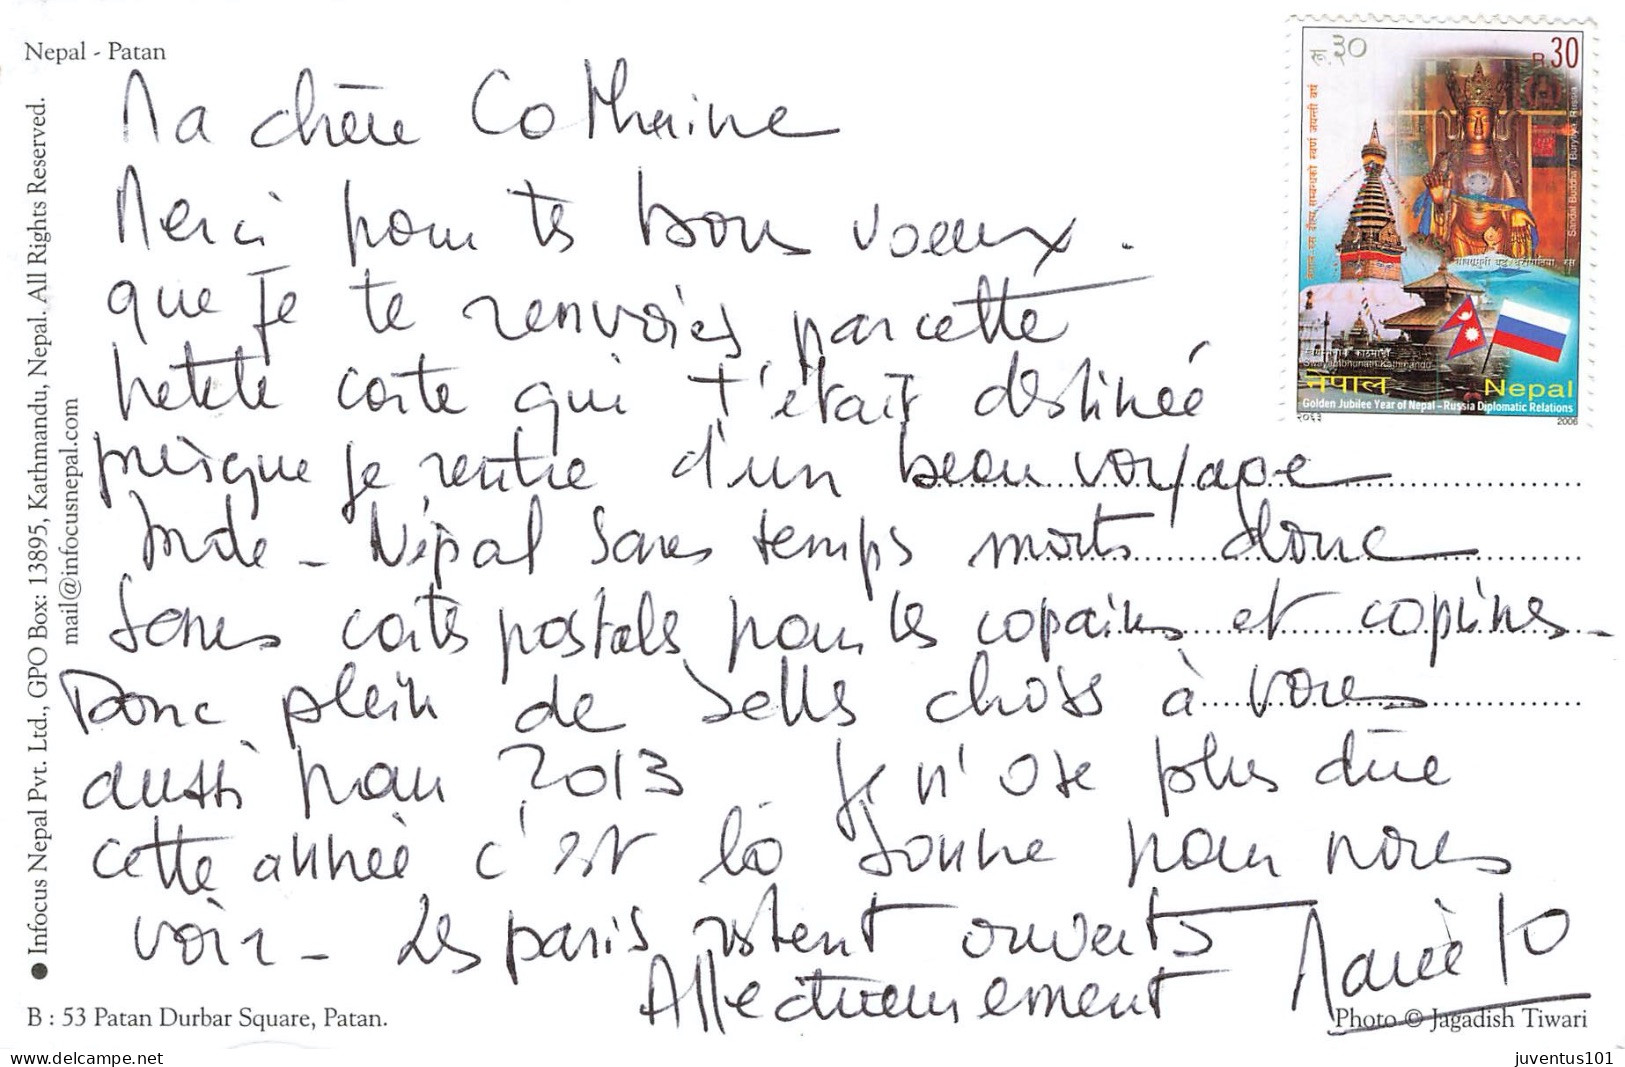 Nepal - Patan
Ma chère Catheine
Merci pour tes bons voeux.
que je te renvoies par cette
petite carte qui t'était destinée
puisque je rentre d'un beau voyage
Inde - Népal sans temps morts donc
sans cartes postales pour les copains et copines -
Donc plein de belles choses à vous
aussi pour 2013 Je n'ose plus dire
cette année c'est la bonne pour nous
voir - Les paris restent ouverts
Affectueusement Marie Jo
Infocus Nepal Pvt. Ltd., GPO Box: 13895, Kathmandu, Nepal. All Rights Reserved.
mail@infocusnepal.com
B : 53 Patan Durbar Square, Patan.
Photo © Jagadish Tiwari
रू.३०
R 30
नेपाल-रुस दौत्य सम्बन्धको स्वर्ण जयन्ती वर्ष
Sandal Buddha / Buryatia, Russia
Swayambhunath Kathmandu
नेपाल
Nepal
Golden Jubilee Year of Nepal - Russia Diplomatic Relations
२०६३
2006
juventus101